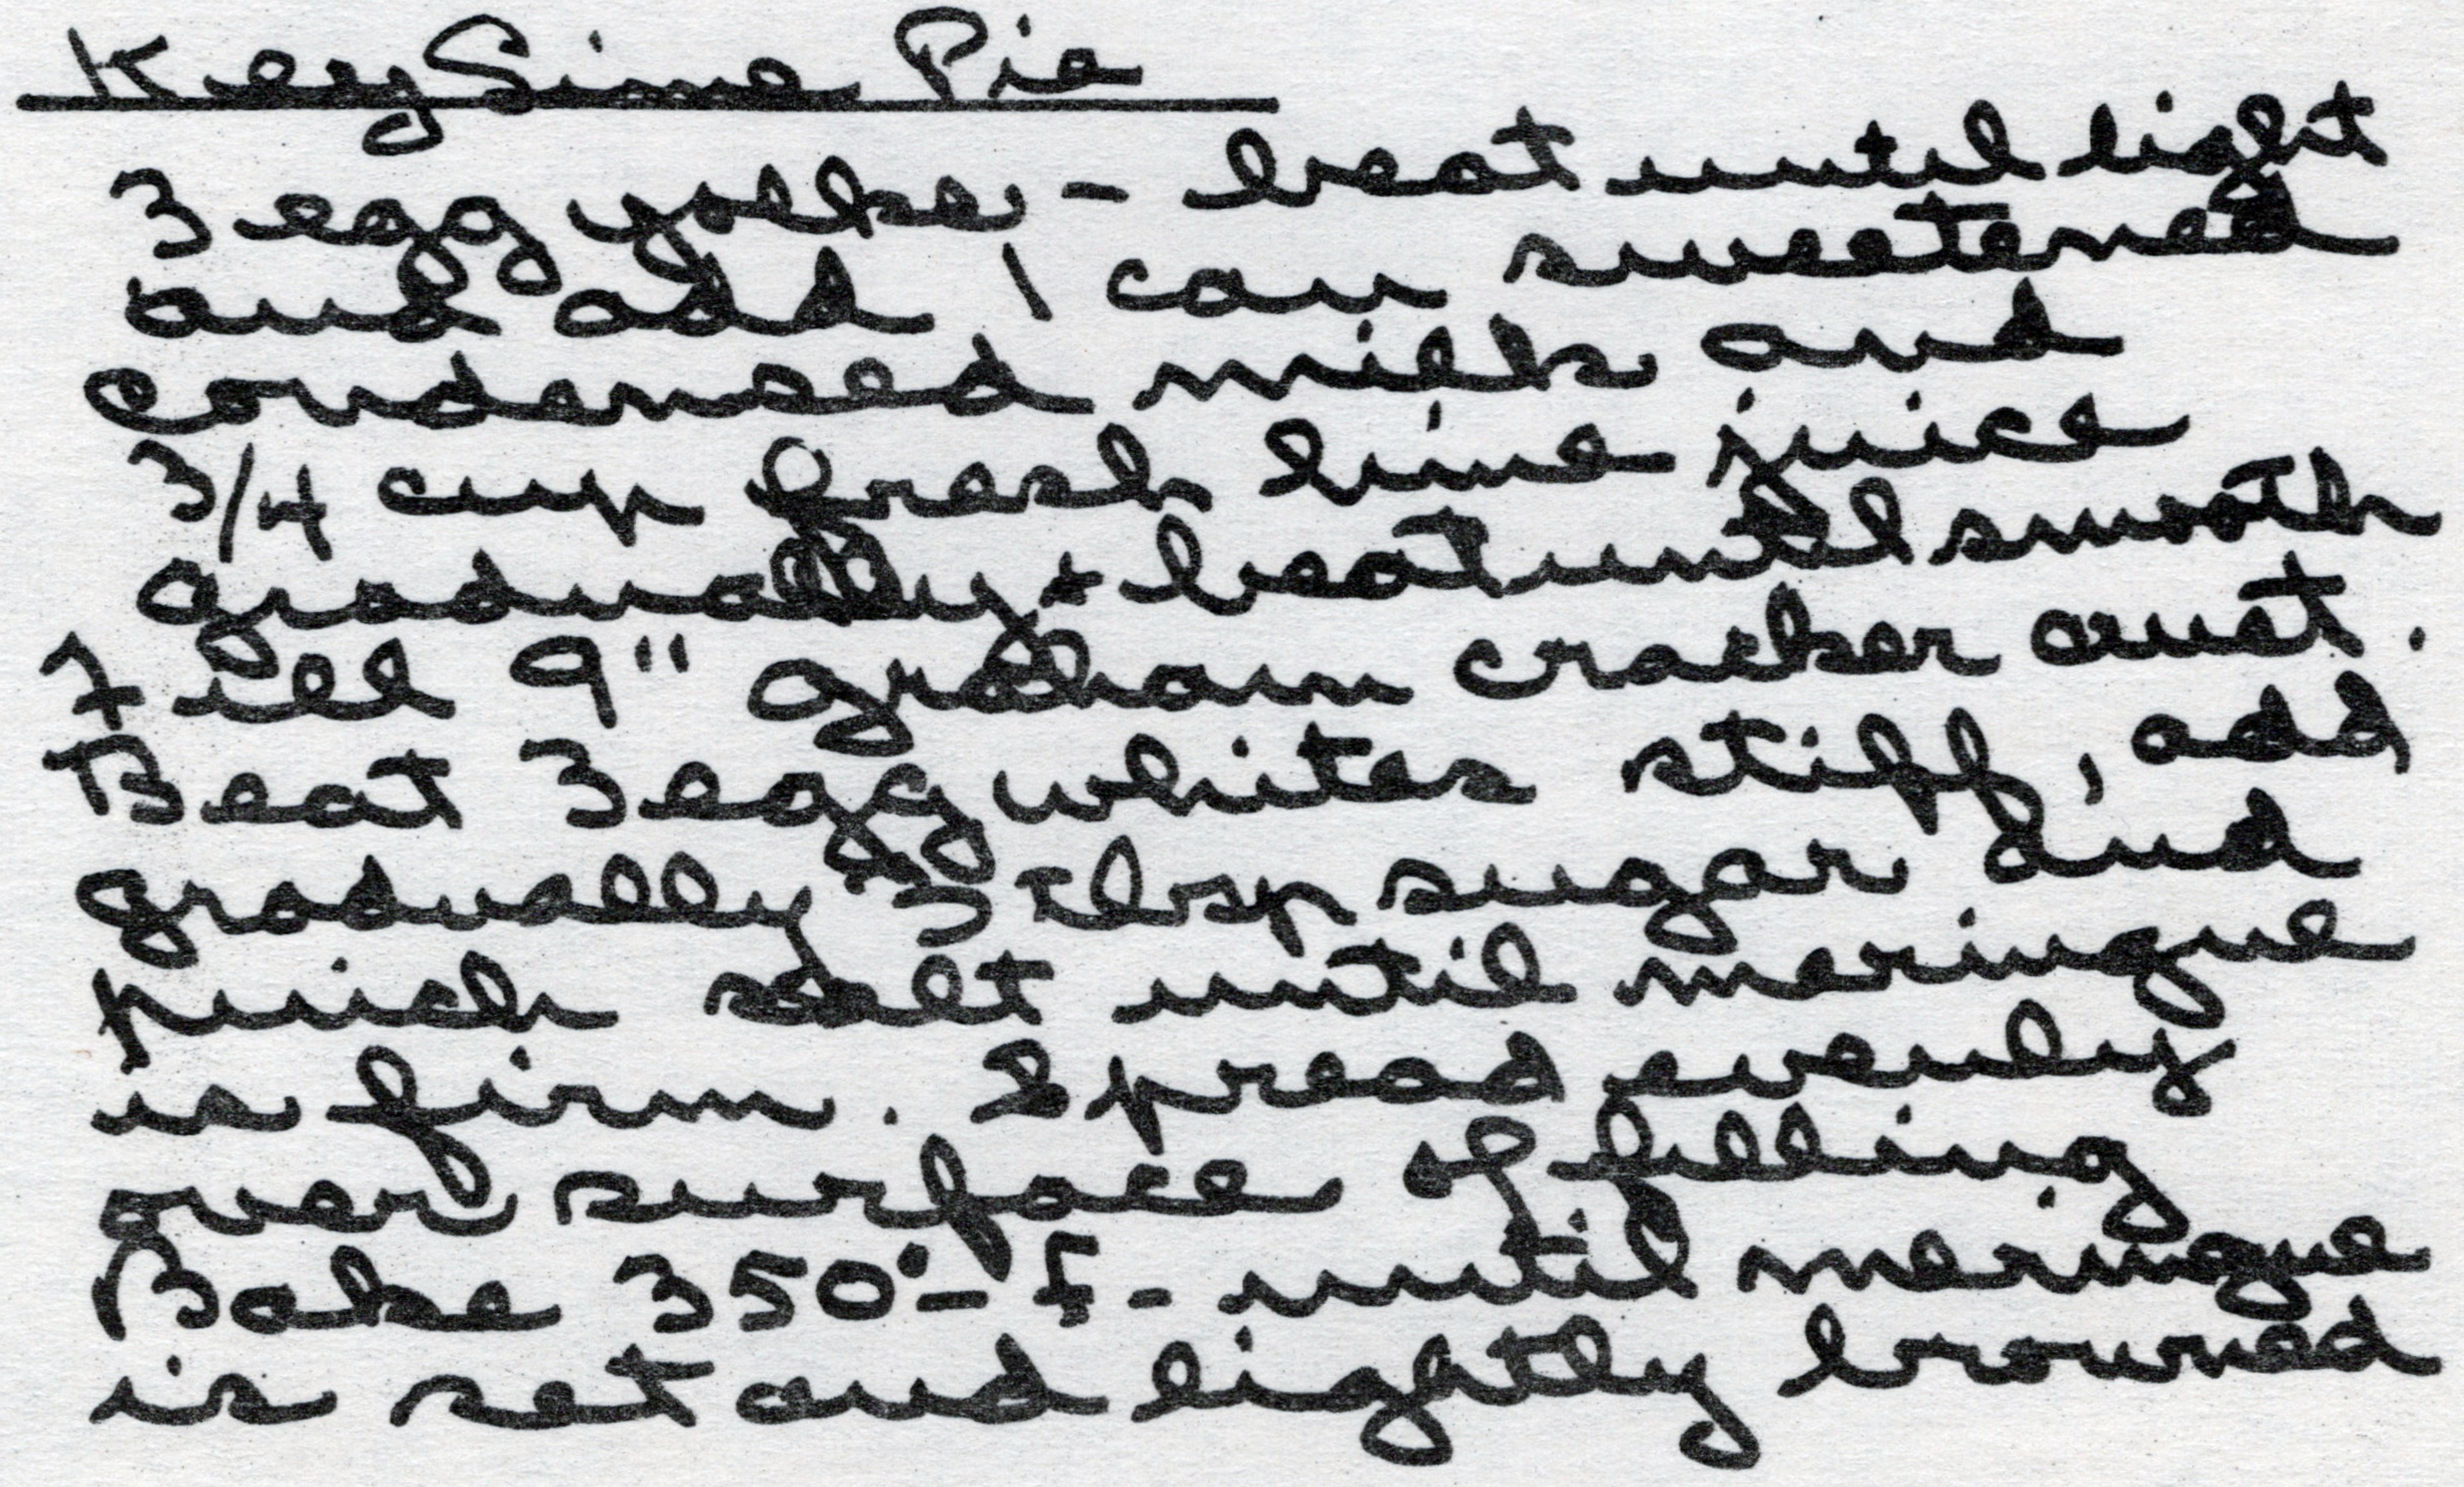 Key Lime Pie
3 egg yolks - beat until light
and add 1 can sweetened
condensed milk and
3/4 cup fresh lime juice
gradually + beat until smooth
Fill 9" graham cracker crust.
Beat 3 egg whites stiff, add
gradually 3 tbsp sugar and
pinch salt until meringue
is firm. Spread evenly
over surface of filling
Bake 350° - F - until meringue
is set and lightly browned